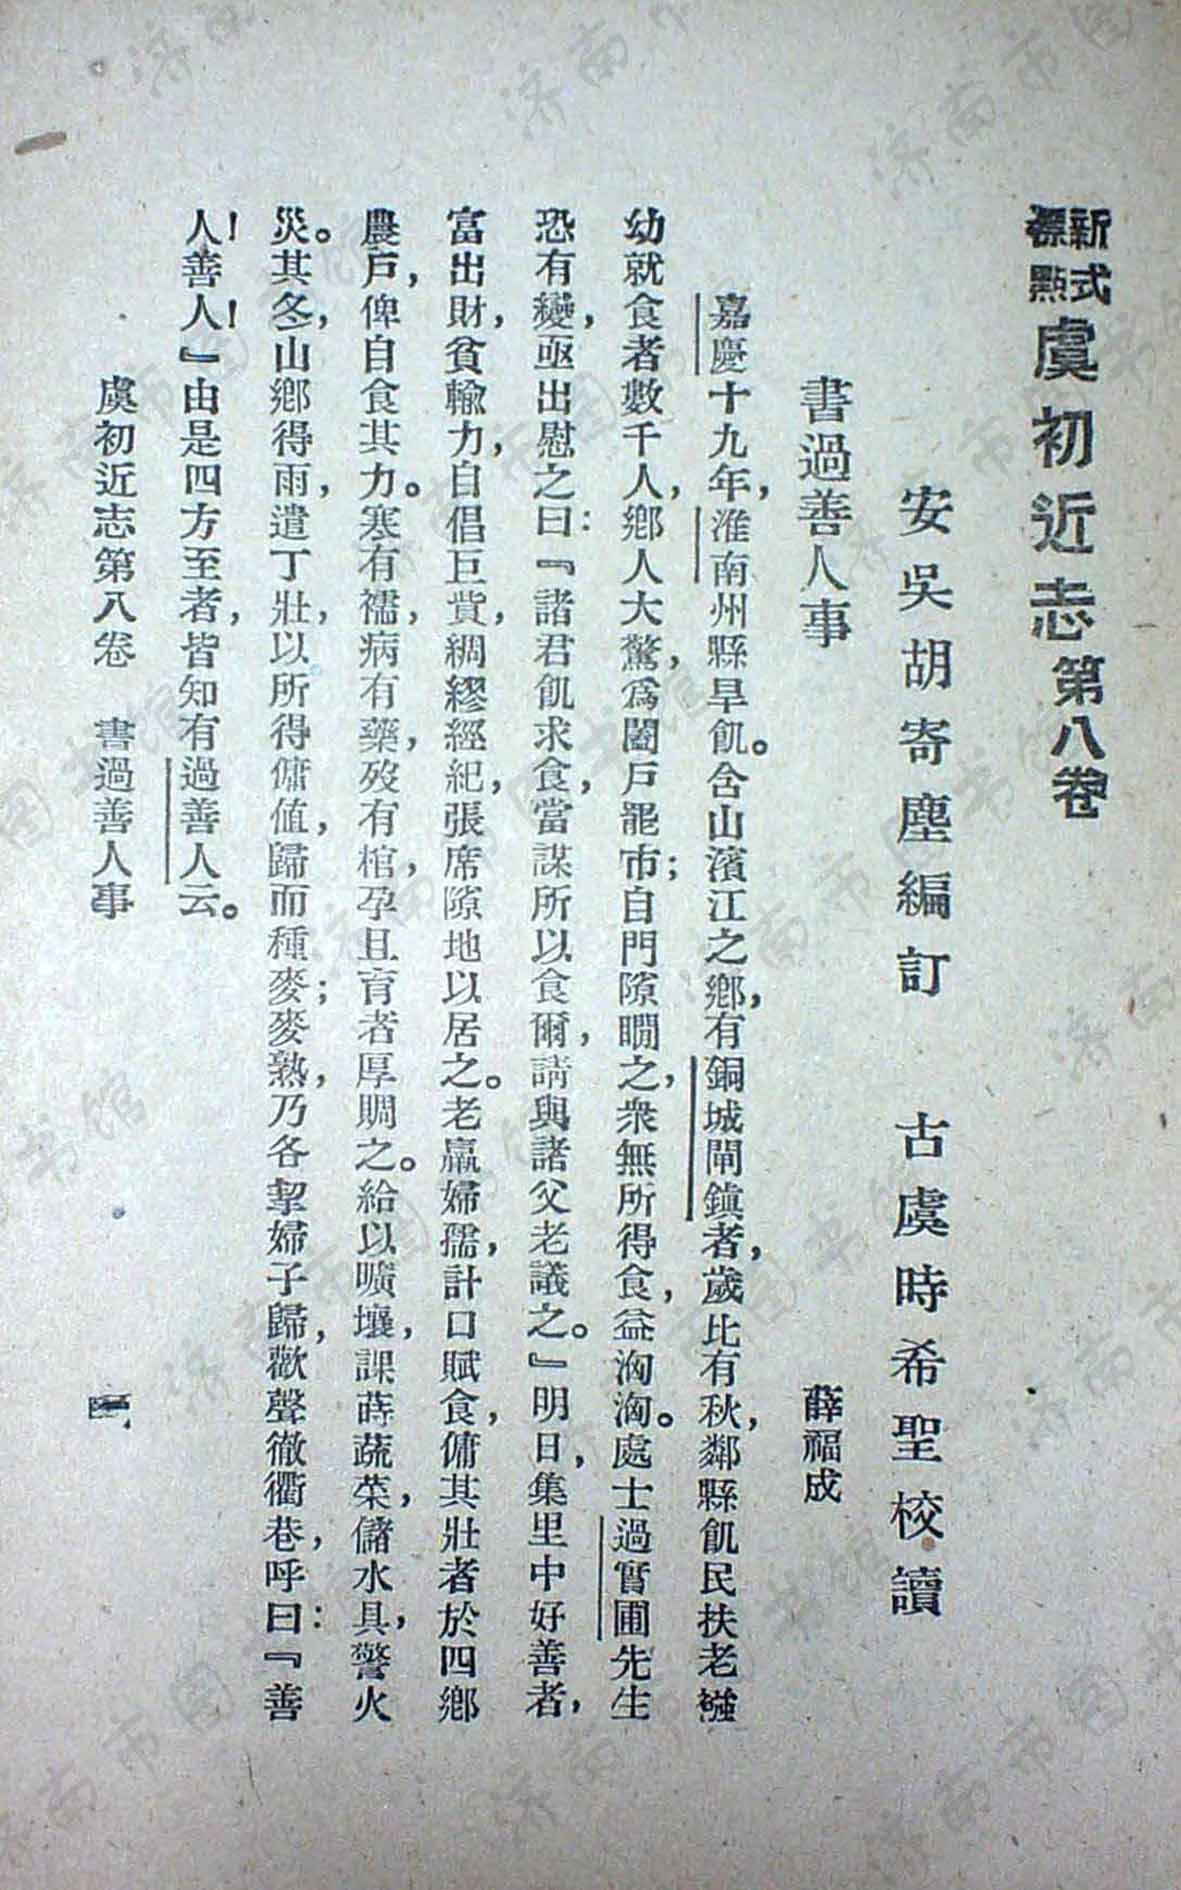 新式標點 虞初近志第八卷
安吳胡寄塵編訂　古虞時希聖校讀
書過善人事　薛福成
嘉慶十九年，淮南州縣旱飢。含山濱江之鄉，有銅城閘鎮者，歲比有秋，鄰縣飢民扶老襁
幼就食者數千人，鄉人大驚，爲闔戶罷市；自門隙瞷之，衆無所得食，益洶洶。處士過實圃先生
恐有變，亟出慰之曰：『諸君飢求食，當謀所以食爾，請與諸父老議之。』明日，集里中好善者，
富出財，貧輸力，自倡巨貲，綢繆經紀，張席隙地以居之。老羸婦孺，計口賦食，傭其壯者於四鄉
農戶，俾自食其力。寒有襦，病有藥，歿有棺，孕且育者厚賙之。給以曠壤，課蒔蔬菜，儲水具，警火
災。其冬，山鄉得雨，遣丁壯，以所得傭值，歸而種麥；麥熟，乃各挈婦子歸，歡聲徹衢巷，呼曰：『善
人！善人！』由是四方至者，皆知有過善人云。
虞初近志第八卷　書過善人事　一
濟南市图书馆